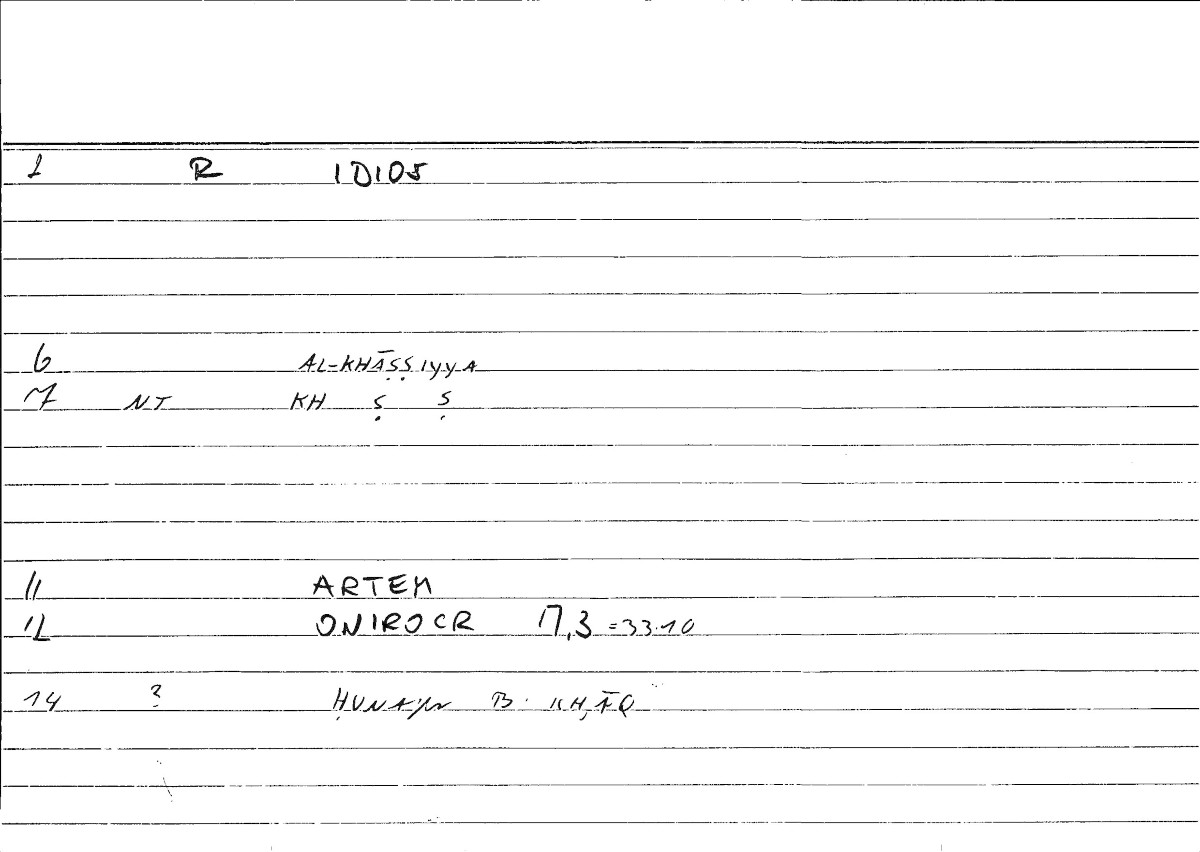 1 R IDIOS
6 AL-KHĀṢṢIYYA
7 NT KH Ṣ Ṣ
11 ARTEM
12 ONIROCR 17,3 =33.10
14 ? ḤUNAYN B. ISḤĀQ